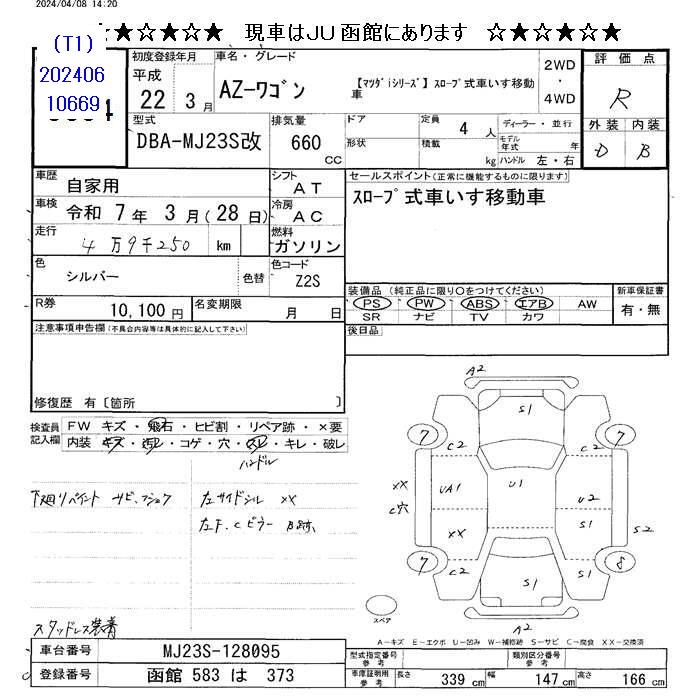 2024/04/08 14:20
★☆★☆★☆★ 現車はJU函館にあります ☆★☆★☆★
(T1)
202406
10669
初度登録年月
平成
22 3 月
車名・グレード
AZ-ワゴン
【マツダiシリーズ】スロープ式車いす移動車
2WD
・
4WD
評価点
R
外装 内装
D B
型式
DBA-MJ23S改
排気量
660
CC
ドア
形状
定員
4 人
積載
kg
ディーラー・並行
モデル年式 年
ハンドル 左・右
車歴
自家用
シフト
AT
車検
令和 7 年 3 月(28 日)
冷房
AC
走行
4万9千250 km
燃料
ガソリン
色
シルバー
色替
色コード
Z2S
R券
10,100 円
名変期限
月 日
セールスポイント(正常に機能するものに限ります)
スロープ式車いす移動車
装備品(純正品に限り○をつけてください)
PS PW ABS エアB AW
SR ナビ TV カワ
新車保証書
有・無
後日品
注意事項申告欄(不具合内容等は具体的に記入して下さい)
修復歴 有〔箇所 〕
検査員記入欄
FW キズ・飛石・ヒビ割・リペア跡・×要
内装 キズ・汚レ・コゲ・穴・スレ・キレ・破レ
ハンドル
下廻りペイント サビ、フショク
左サイドシル XX
左F、Cピラー B跡、
スタッドレス装着
A2
S1
7 C2 C2 7
XX
C穴
UA1 U1 U2
XX S1 S2
7 C2 S1 S1 8
A2
スペア
A-キズ E-エクボ U-凹み W-補修跡 S-サビ C-腐食 XX-交換済
車台番号 MJ23S-128095
登録番号 函館 583 は 373
型式指定番号
参考
類別区分番号
参考
車庫証明用
参考
長さ 339 cm 幅 147 cm 高さ 166 cm